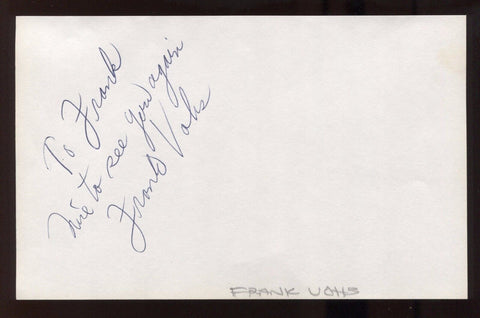 To Frank
nice to see you again
Frank Vohs
FRANK VOHS